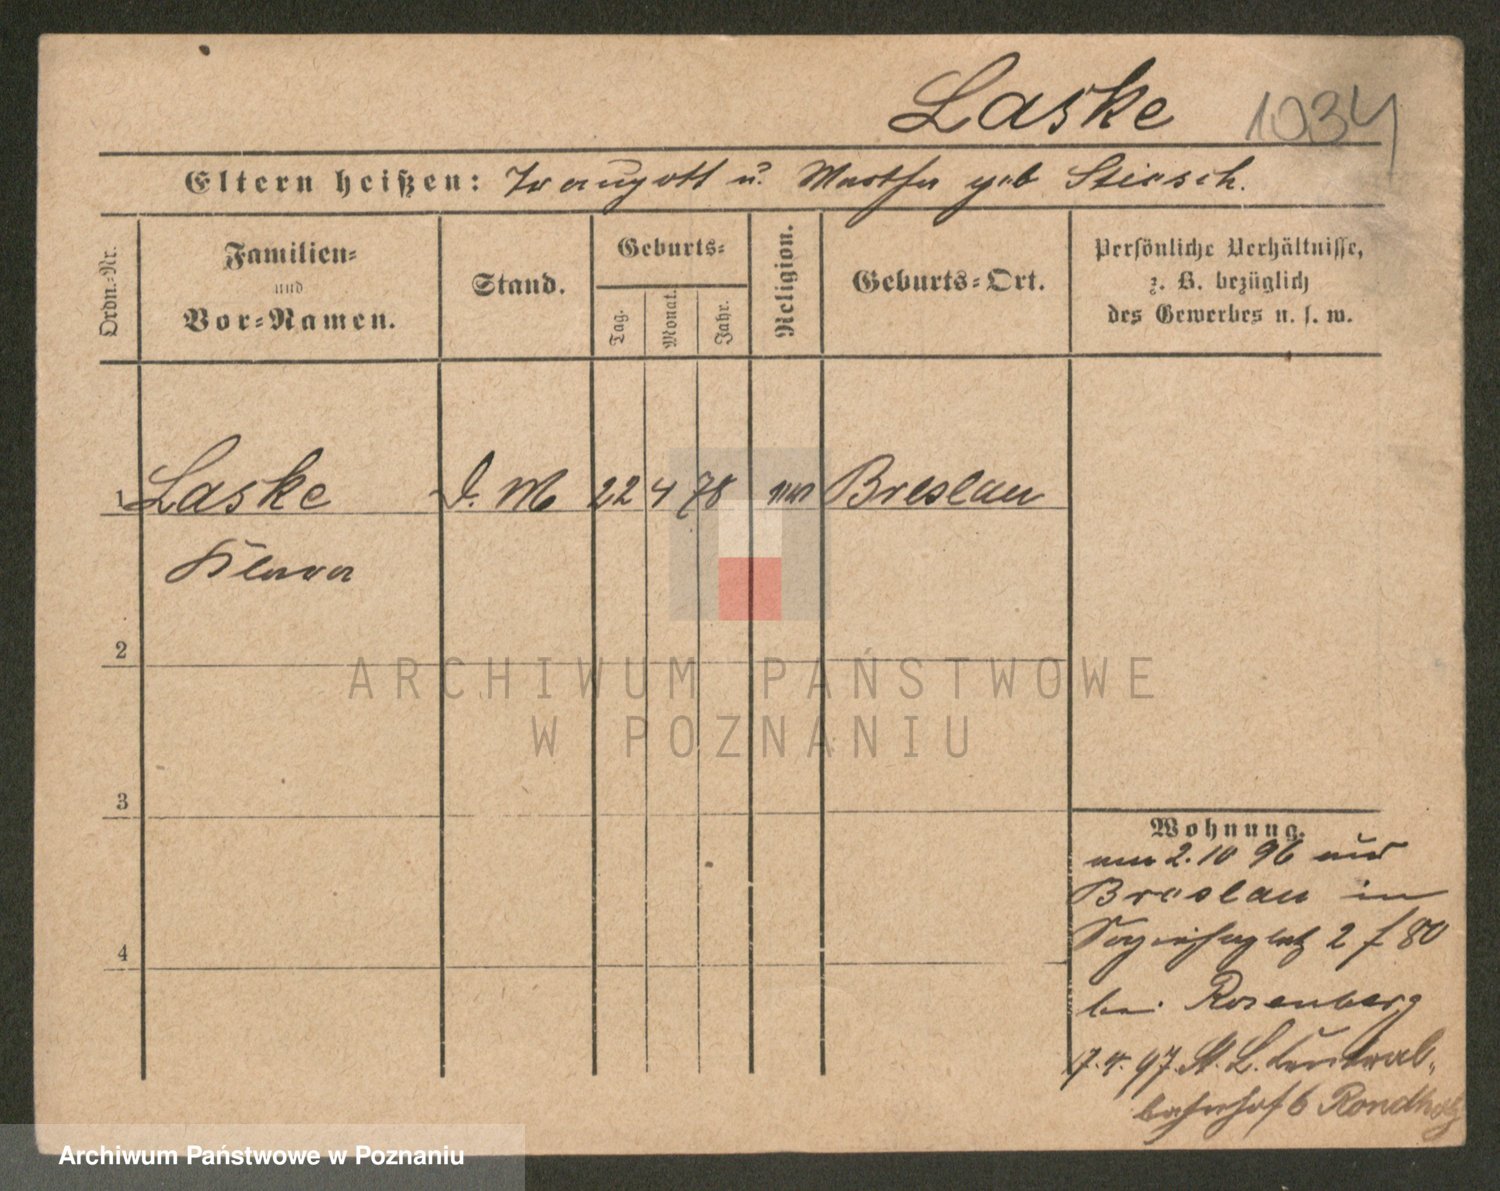 Laske 1034
Eltern heißen: Traugott u. Martha geb Stiasch.
Ordn.-Nr.
Familien-
und
Vor-Namen.
Stand.
Geburts-
Tag.
Monat.
Jahr.
Religion.
Geburts-Ort.
Persönliche Verhältnisse,
z. B. bezüglich
des Gewerbes u. s. w.
1 Laske D. M 22 4 78 Breslau
Klara
2
3
4
ARCHIWUM PAŃSTWOWE
W POZNANIU
Wohnung.
am 2. 10 96 aus
Breslau in
2 f 80
bei Rosenberg
7. 4. 97. St. L. Central-
bahnhof 6 Rondholz
Archiwum Państwowe w Poznaniu